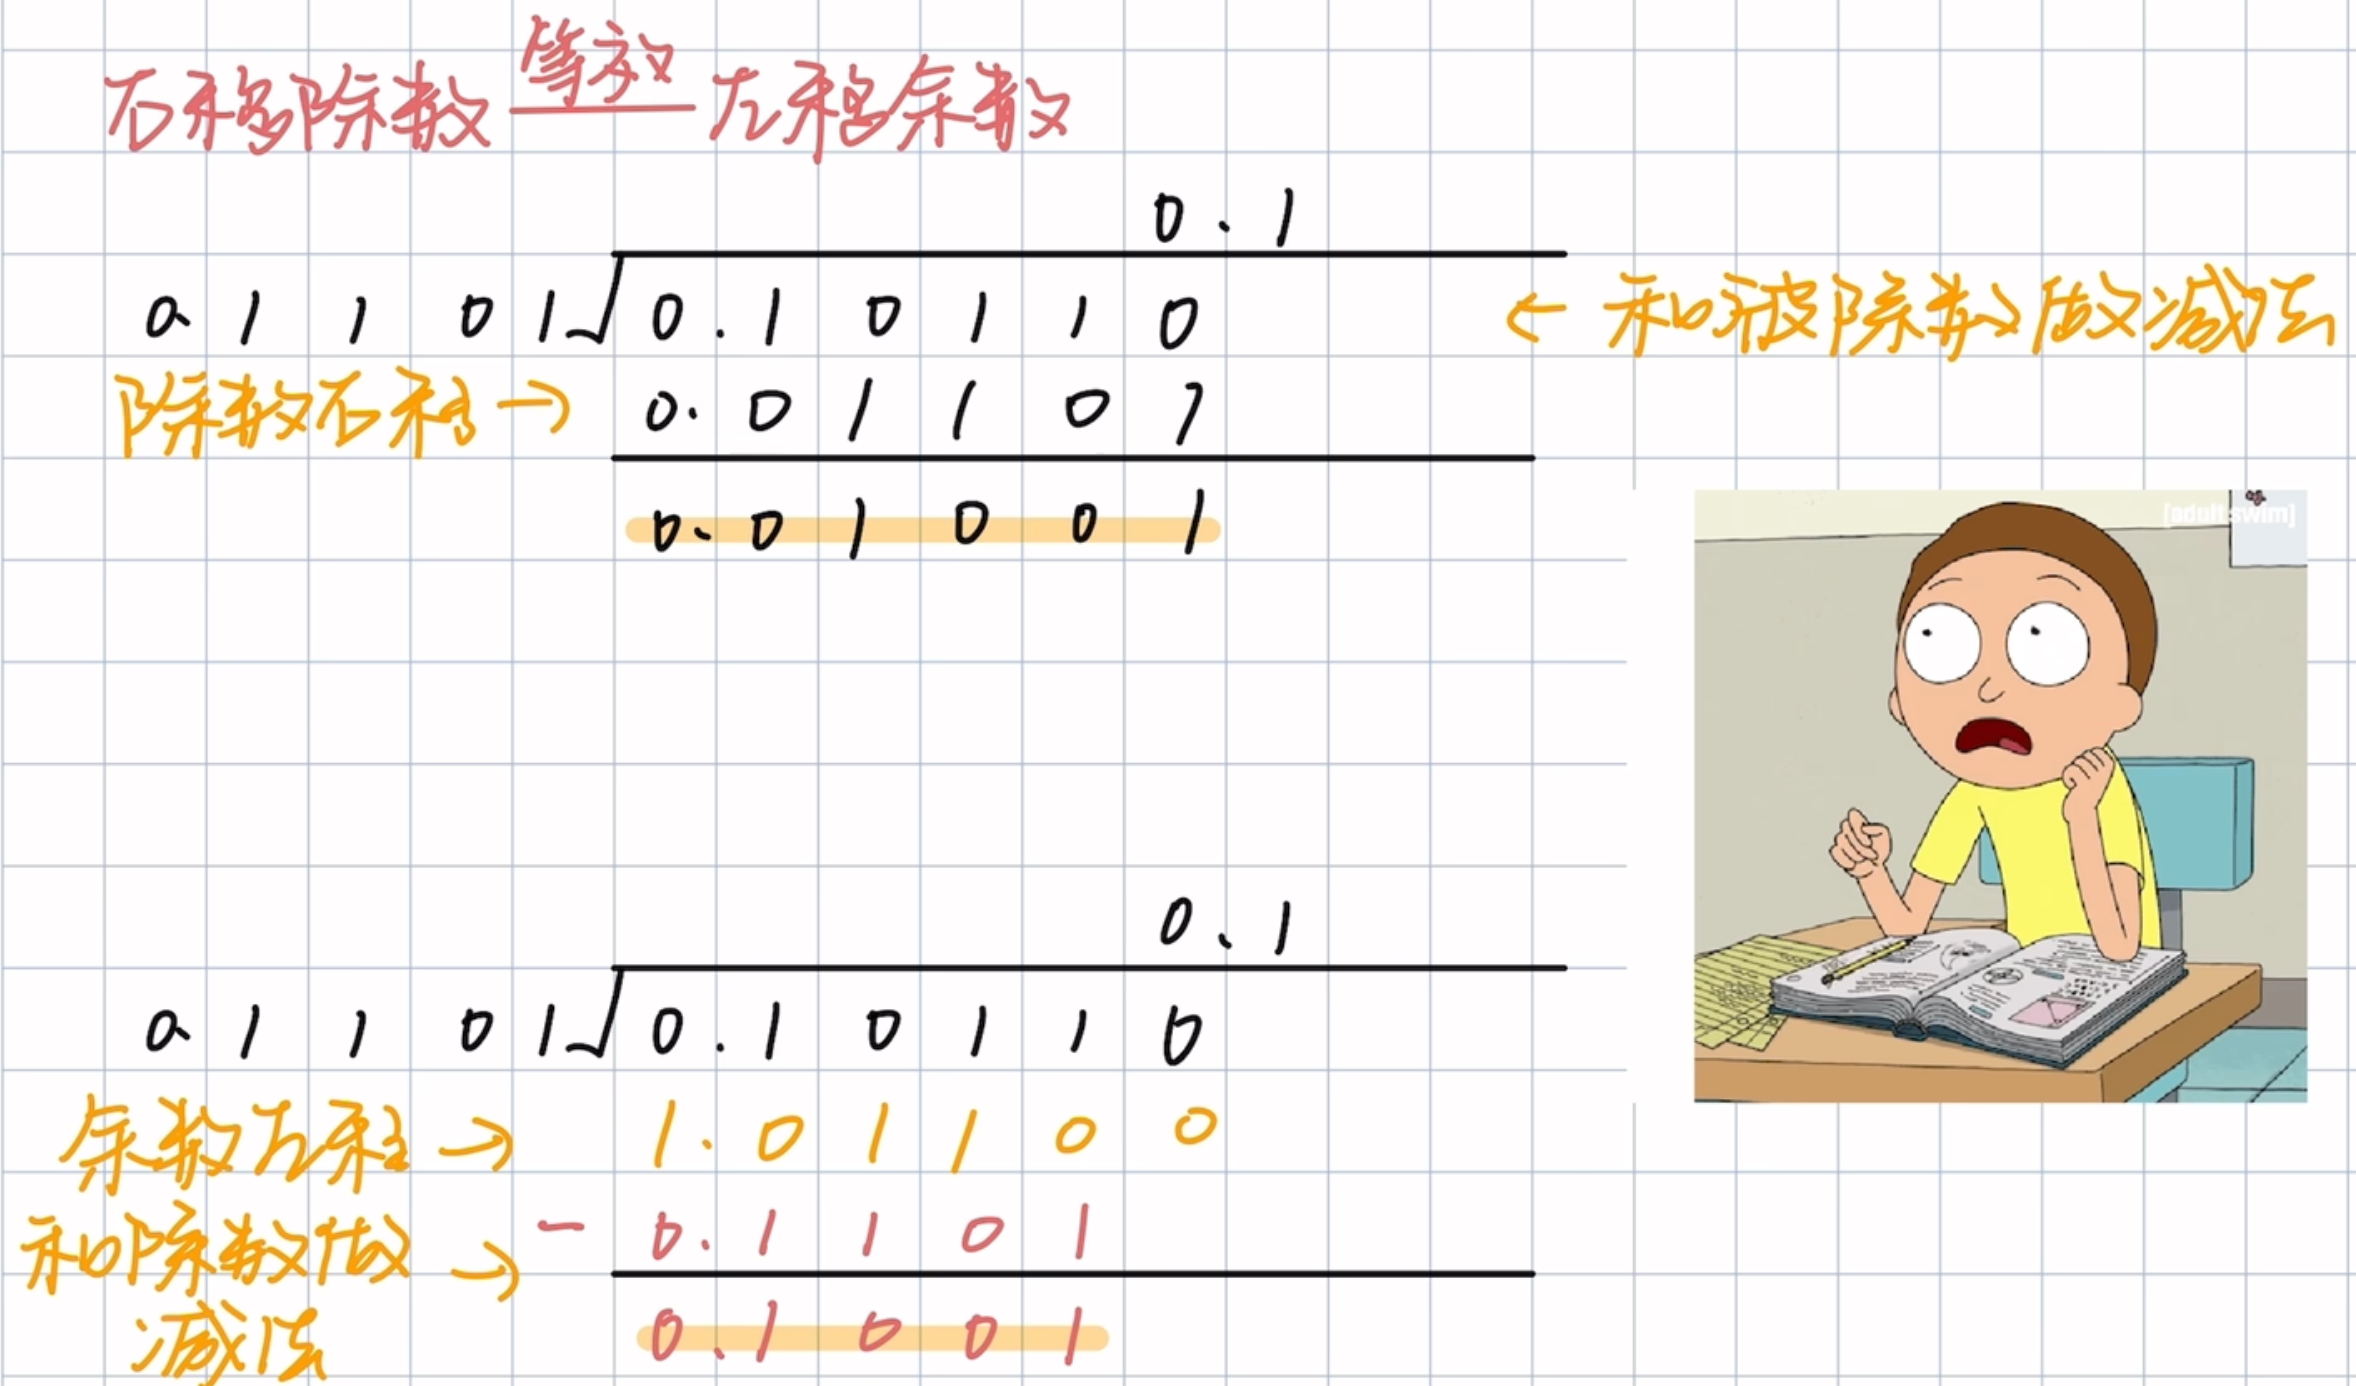 右移除数 等效 左移余数
0.1
0.1101 0.10110 ← 和被除数做减法
除数右移→ 0.01101
0.01001
[adult swim]
0.1
0.1101 0.10110
余数左移→ 1.01100
和除数做减法→ - 0.1101
0.1001